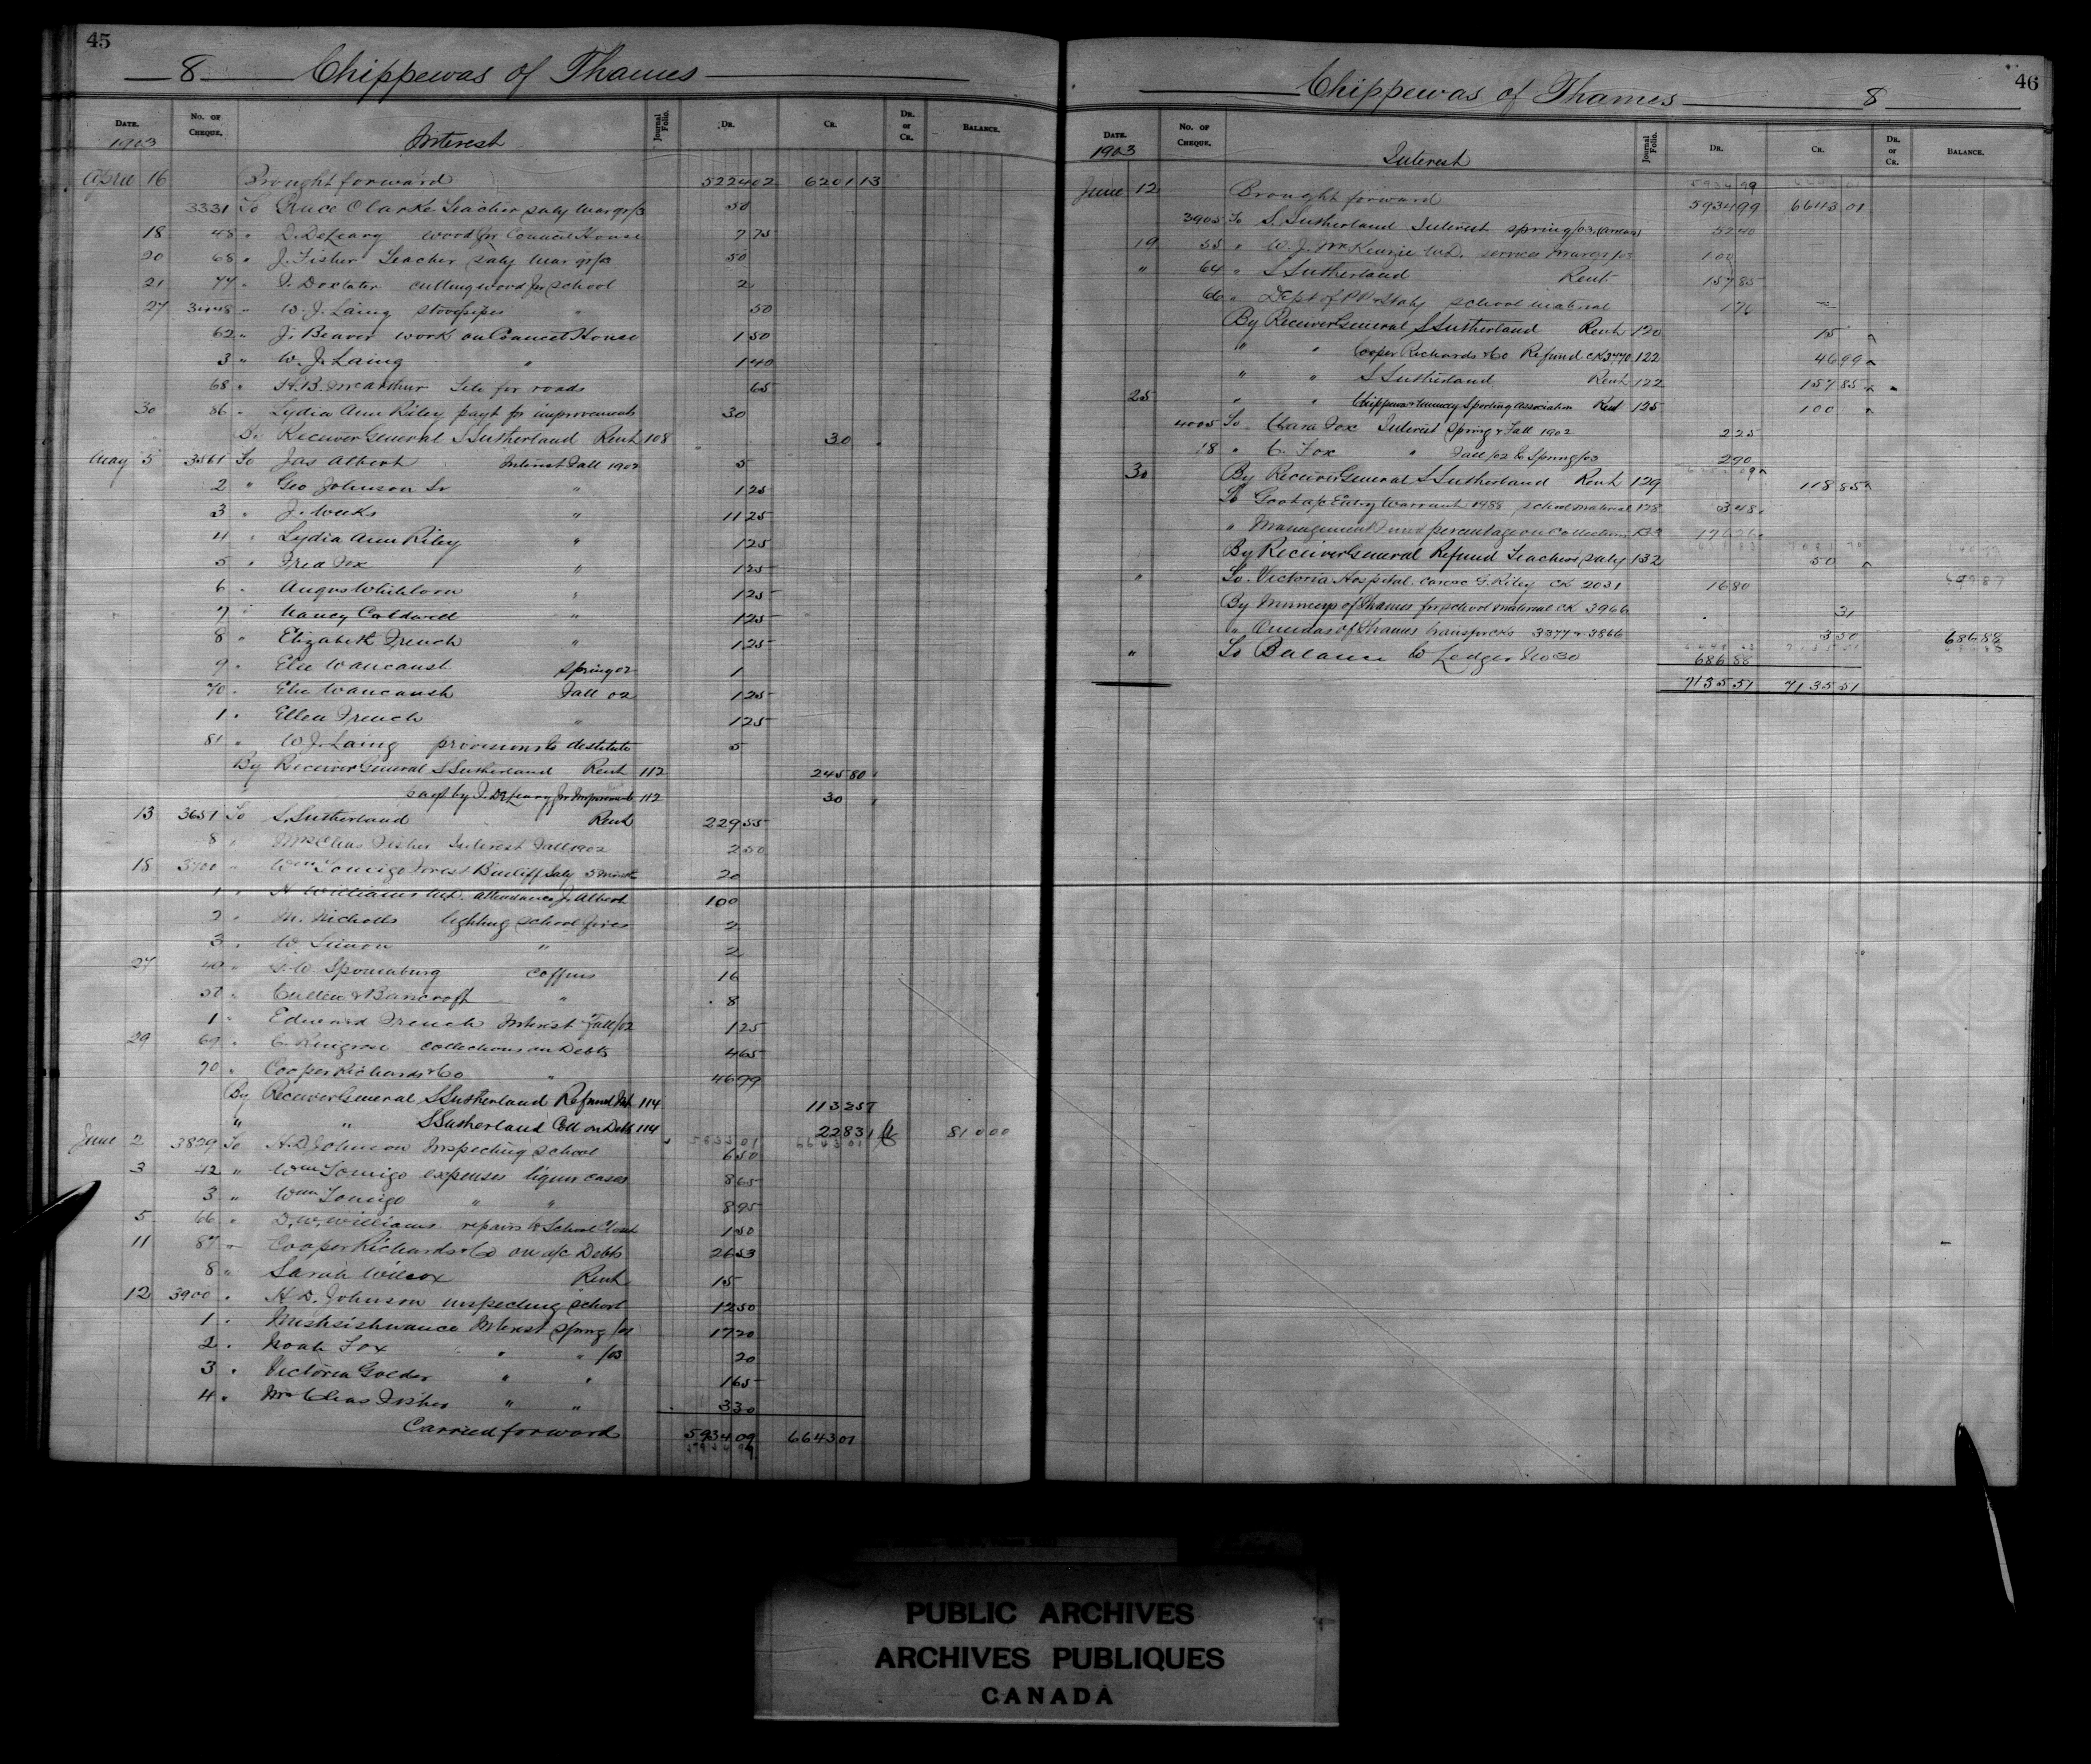 45
8 Chippewas of Thames
Date. No. of Cheque. Interest Journal Folio. Dr. Cr. Dr. or Cr. Balance.
1903
April 16 Brought forward 5224 02 6201 13
3331 To Grace Clarke Teacher Saly Mar qr/3 50
18 48 " D. DeLeary wood for Council House 7 75
20 68 " J. Fisher Teacher Saly Mar qr/03 50
21 77 " J. Doxtater cutting wood for school 2
27 3448 " W. J. Laing stovepipes " 50
62 " J. Beaver work on Council House 1 50
3 " W. J. Laing " 1 40
68 " H. B. McArthur Tile for roads 65
30 86 " Lydia Ann Riley payt for improvements 30
By Receiver General S Sutherland Rent 108 30
May 5 3561 To Jas Albert Interest Fall 1902 5
2 " Geo Johnson Sr " 1 25
3 " J. Weeks " 11 25
4 " Lydia Ann Riley " 1 25
5 " Fred Fox " 1 25
6 " Angus Whitlorn " 1 25
7 " Nancy Caldwell " 1 25
8 " Elizabeth French " 1 25
9 " Elie Waucaush Spring 02 1
70 " Elie Waucaush Fall 02 1 25
1 " Ellen French " 1 25
81 " W J. Laing provisions to destitute 5
By Receiver General S Sutherland Rent 112 245 80
payt by J. DeLeary for Improvements 112 30
13 3657 To S. Sutherland Rent 229 55
8 " Mrs Chas Fisher Interest Fall 1902 2 50
18 3700 " Wm Tomigo Forest Bailiff Saly 20
1 " H Williams M.D. attendance J. Albert 100
2 " M. Nicholls lighting school fires 2
3 " W Simon " 2
27 49 " G. W. Spomaburg coffins 16
50 " Cullen & Bancroft " 8
1 " Edward French Interest Fall/02 1 25
29 69 " C. Ringrose collections on Debts 4 65
70 " Cooper Richards & Co " 46 99
By Receiver General S Sutherland Refund Int 114 113 257
" " S Sutherland Coll on Debts 114 228 31 810 00
June 2 3829 To H. D. Johnson Inspecting School 6 50
3 42 " Wm Tomigo expenses liquor cases 8 65
3 " Wm Tomigo " " 8 95
5 66 " D. W. Williams repairs to School Closet 1 50
11 87 " Cooper Richards & Co on a/c Debts 26 53
8 " Sarah Wilcox Rent 15
12 3900 " H D. Johnson inspecting school 12 50
1 " Mishsishwance Interest Spring /01 17 20
2 " Noah Fox " " /03 20
3 " Victoria Golder " " 1 65
4 " Mrs Chas Fisher " " 3 30
Carried forward 5934 09 6643 01
46
Chippewas of Thames 8
Date. No. of Cheque. Interest Journal Folio. Dr. Cr. Dr. or Cr. Balance.
1903
June 12 Brought forward 5934 99 6643 01
3905 To S. Sutherland Interest Spring/03 52 40
19 55 " W. J. McKenzie M.D. services Mar qr/03 100
" 64 " S Sutherland Rent 157 85
66 " Dept of P.P. & Staty school material 1 76
By Receiver General S Sutherland Rent 120 15
" " Cooper Richards & Co Refund CK 3470 122 46 99
" " S Sutherland Rent 122 157 85
25 " " Chippewa & Muncey Sporting Association Rent 125 100
4005 To Clara Fox Interest Spring & Fall 1902 2 25
18 " C. Fox " Fall/02 to Spring/03 2 90
30 By Receiver General S Sutherland Rent 129 118 85
To Govt a/c Entry Warrant 1488 school material 128 3 48
" Management Fund percentage on collections 176 26
By Receiver General Refund Teachers Saly 132 50
" To Victoria Hospital care of G. Riley CK 2031 16 80 699 87
By Munceys of Thames for school material CK 3966 31
" Oneidas of Thames transfer CKs 3377 & 3866 3 50 686 88
" To Balance to Ledger No 30 686 88
7135 51 7135 51
PUBLIC ARCHIVES
ARCHIVES PUBLIQUES
CANADA